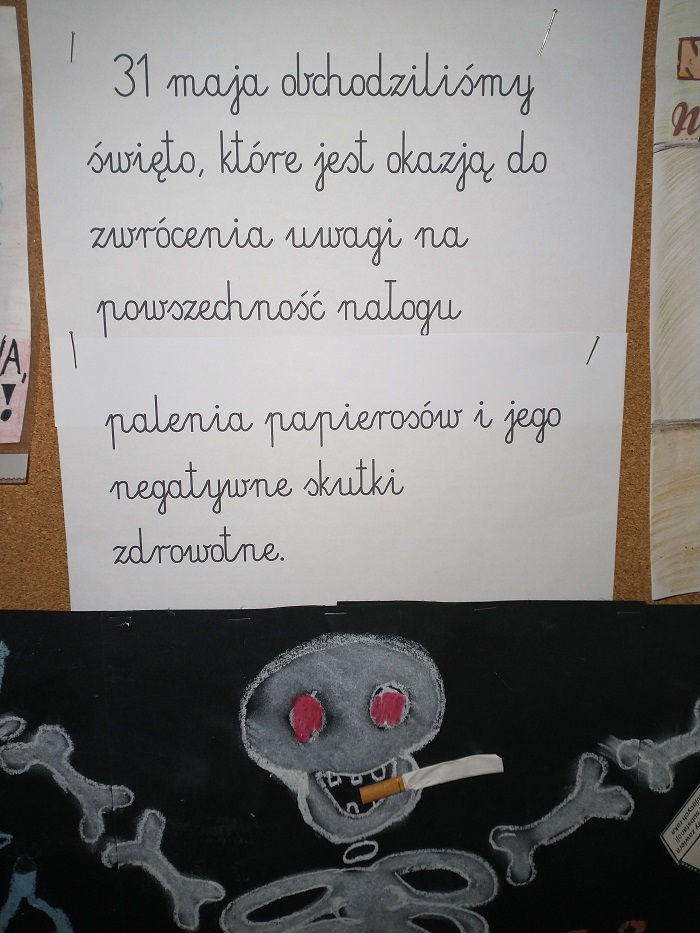 31 maja obchodziliśmy
święto, które jest okazją do
zwrócenia uwagi na
powszechność nałogu
palenia papierosów i jego
negatywne skutki
zdrowotne.
A,
!